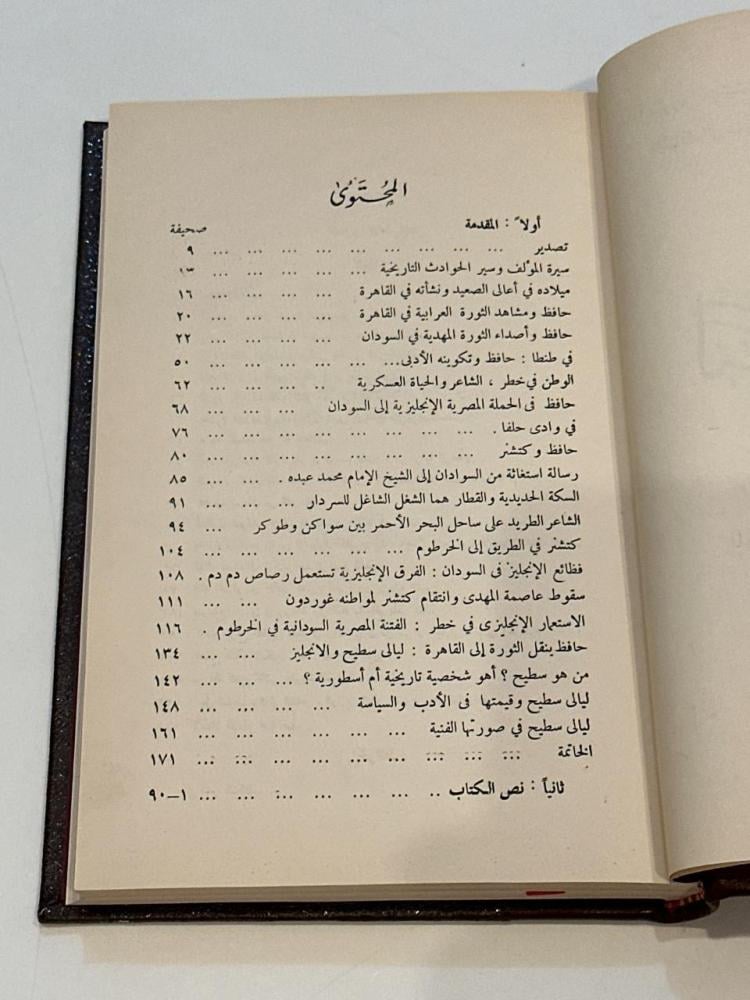 المحتوى
أولاً : المقدمة
صحيفة
تصدير ... ... ... ... ... ... ... ... ... ٩
سيرة المؤلف وسير الحوادث التاريخية ... ... ... ... ... ١٣
ميلاده في أعالى الصعيد ونشأته في القاهرة ... ... ... ... ١٦
حافظ ومشاهد الثورة العرابية في القاهرة ... ... ... ... ٢٠
حافظ وأصداء الثورة المهدية في السودان ... ... ... ... ٢٢
في طنطا : حافظ وتكوينه الأدبى... ... ... ... ... ... ٥٠
الوطن في خطر ، الشاعر والحياة العسكرية .. ... ... ... ٦٢
حافظ فى الحملة المصرية الإنجليزية إلى السودان ... ... ... ٦٨
في وادى حلفا . ... ... ... ... ... ... ... ... ٧٦
حافظ وكتشنر ... ... ... ... ... ... ... ... ٨٠
رسالة استغاثة من السوادان إلى الشيخ الإمام محمد عبده . ... ... ... ٨٥
السكة الحديدية والقطار هما الشغل الشاغل للسردار ... ... ... ٩١
الشاعر الطريد على ساحل البحر الأحمر بين سواكن وطوكر ... ... ٩٤
كتشنر في الطريق إلى الخرطوم ... ... ... ... ... ... ١٠٤
فظائع الإنجليز فى السودان : الفرق الإنجليزية تستعمل رصاص دم دم . ١٠٨
سقوط عاصمة المهدى وانتقام كتشنر لمواطنه غوردون ... ... ١١١
الاستعمار الإنجليزى في خطر : الفتنة المصرية السودانية في الخرطوم . ١١٦
حافظ ينقل الثورة إلى القاهرة : ليالى سطيح والانجليز ... ... ١٣٤
من هو سطيح ؟ أهو شخصية تاريخية أم أسطورية ؟ ... ... ... ١٤٢
ليالى سطيح وقيمتها فى الأدب والسياسة ... ... ... ... ١٤٨
ليالى سطيح في صورتها الفنية ... ... ... ... ... ... ١٦١
الخاتمة ... ... ... ... ... ... ... ... ... ١٧١
ثانياً : نص الكتاب .. ... ... ... ... ... ... ... ١—٩٠